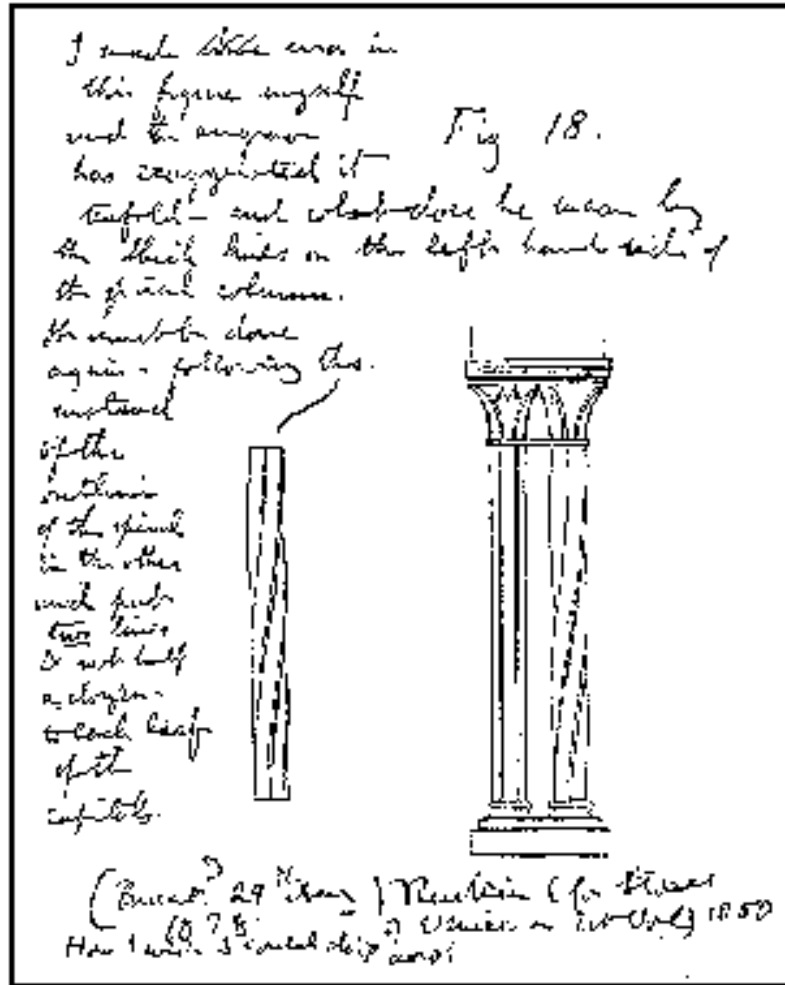 I made little error in
this figure myself
and the engraver
Fig 18.
has exaggerated it
tenfold - and what does he mean by
the thick lines on the left hand side of
the spiral column.
must be done
again - following this.
instead
of the
outlines
of the spiral
in the other
and put
two lines
& not half
a dozen -
to each leaf
of the
capitals.
29
(for Stones
of Venice 1850
How I wish I could